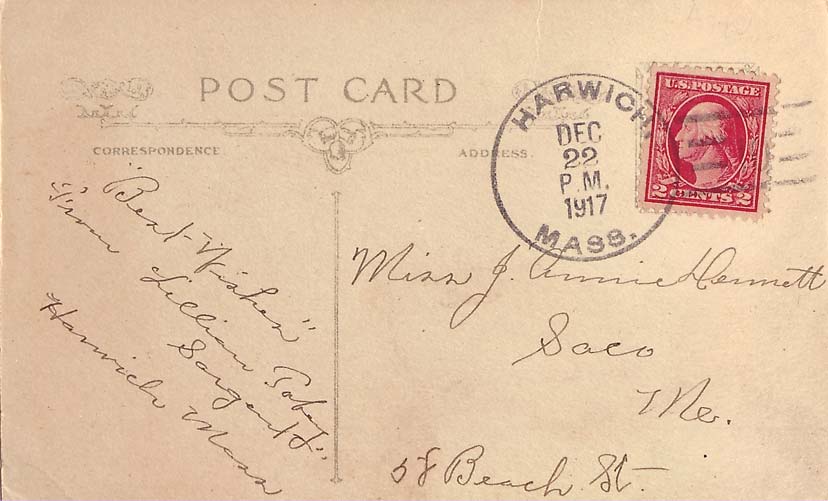 POST CARD
CORRESPONDENCE
ADDRESS.
HARWICH,
DEC
22
P.M.
1917
MASS.
U.S. POSTAGE
2 CENTS 2
"Best Wishes"
"From Lillian
Sargent"
Harwich Mass
Miss J. Annie Dennett
Saco
Me.
58 Beach St.